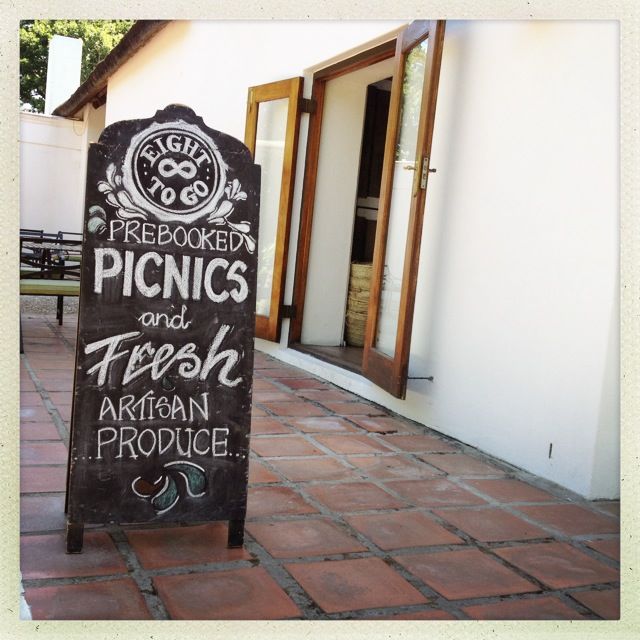 EIGHT
TO GO
PREBOOKED
PICNICS
and
Fresh
ARTISAN
...PRODUCE...